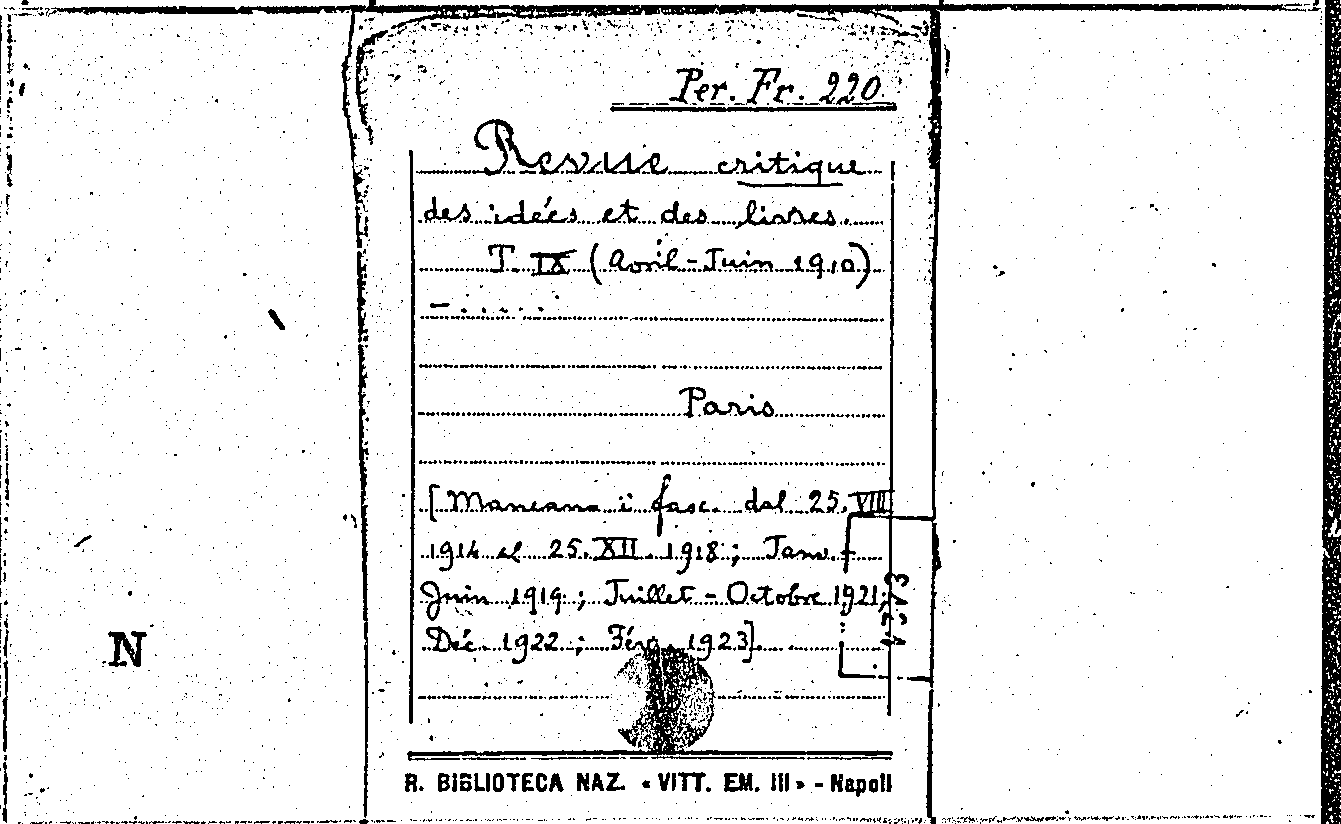 Per. Fr. 220.
Revue critique
des idées et des livres.
T. IX (Avril-Juin 1910)
- . . . . .
Paris
[Mancano i fasc. dal 25.VIII
1914 al 25.XII.1918; Janv.-
Juin 1919; Juillet-Octobre 1921;
Déc. 1922; Févr. 1923].
N
R. BIBLIOTECA NAZ. «VITT. EM. III» - Napoli